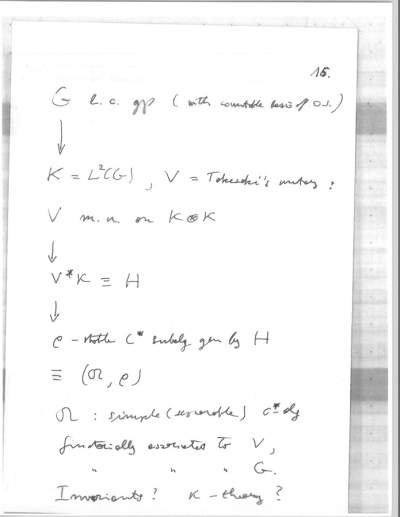 15.
G l.c. gp (with countable basis of o.s.)
↓
K = L²(G), V = Takesaki's unitary:
V m.u. on K⊗K
↓
V*K ≡ H
↓
ρ-stable C* subalg gen by H
≡ (𝒪, ρ)
𝒪 : simple (separable) C*alg
functorially associated to V,
" " " G.
Invariants? K-theory?